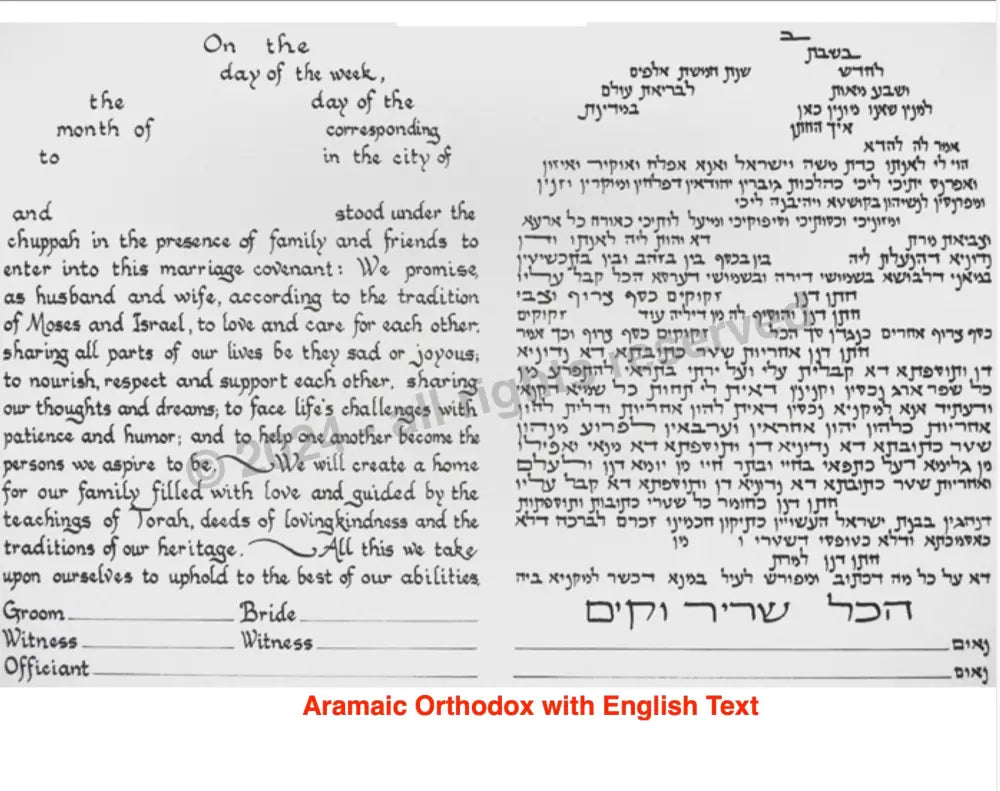 On the
day of the week,
the day of the
month of corresponding
to in the city of
and stood under the
chuppah in the presence of family and friends to
enter into this marriage covenant: We promise,
as husband and wife, according to the tradition
of Moses and Israel, to love and care for each other;
sharing all parts of our lives be they sad or joyous;
to nourish, respect and support each other, sharing
our thoughts and dreams; to face life's challenges with
patience and humor; and to help one another become the
persons we aspire to be. We will create a home
for our family filled with love and guided by the
teachings of Torah, deeds of lovingkindness and the
traditions of our heritage. All this we take
upon ourselves to uphold to the best of our abilities.
Groom Bride
Witness Witness
Officiant
ב
בשבת
לחדש שנת חמשת אלפים
ושבע מאות לבריאת עולם
למנין שאנו מונין כאן במדינת
איך החתן
אמר לה להדא
הוי לי לאנתו כדת משה וישראל ואנא אפלח ואוקיר ואיזון
ואפרנס יתיכי ליכי כהלכות גוברין יהודאין דפלחין ומוקרין וזנין
ומפרנסין לנשיהון בקושטא ויהיבנא ליכי
ומזוניכי וכסותיכי וסיפוקיכי ומיעל לותיכי כאורח כל ארעא
וצביאת מרת דא והות ליה לאנתו ודין
נדוניא דהנעלת ליה בין בכסף בין בזהב ובין בתכשיטין
במאני דלבושא בשמושי דירה ובשמושי דערסא הכל קבל עליו
חתן דנן זקוקים כסף צרוף וצבי
חתן דנן והוסיף לה מן דיליה עוד זקוקים
כסף צרוף אחרים כנגדן סך הכל זקוקים כסף צרוף וכך אמר
חתן דנן אחריות שטר כתובתא דא נדוניא
דן ותוספתא דא קבלית עלי ועל ירתי בתראי להתפרע מן
כל שפר ארג נכסין וקנינין דאית לי תחות כל שמיא דקנאי
ודעתיד אנא למקניא נכסין דאית להון אחריות ודלית להון
אחריות כלהון יהון אחראין וערבאין לפרוע מנהון
שטר כתובתא דא נדוניא דן ותוספתא דא מנאי ואפילו
מן גלימא דעל כתפאי בחיי ובתר חיי מן יומא דנן ולעלם
ואחריות שטר כתובתא דא נדוניא דן ותוספתא דא קבל עליו
חתן דנן כחומר כל שטרי כתובות ותוספתות
דנהגין בבנת ישראל העשויין כתיקון חכמינו זכרם לברכה דלא
כאסמכתא ודלא כטופסי דשטרי ו מן
חתן דנן למרת
דא על כל מה דכתוב ומפורש לעיל במנא דכשר למקניא ביה
הכל שריר וקים
נאום
נאום
© 2024 - all rights reserved
Aramaic Orthodox with English Text